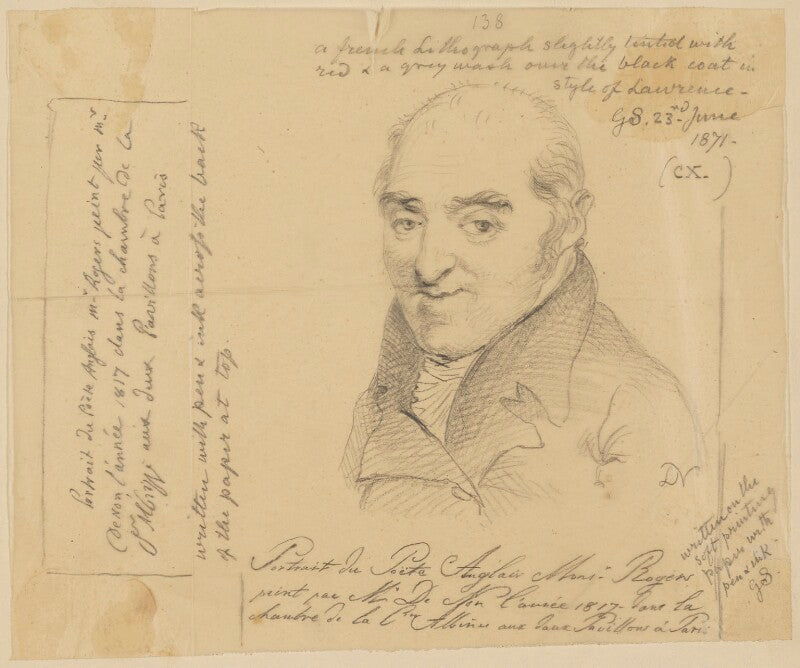 138
a french Lithograph slightly tinted with
red & a grey wash over the black coat in
style of Lawrence -
GS. 23rd June
1871 -
(CX.)
Portrait du Poëte Anglais Mr Rogers peint par Mr
Denon l'année 1817 dans la chambre de la
aux deux Pavillons à Paris
written with pen & ink across the back
of the paper at top.
DN
written on the
soft printing
paper with
pen & ink.
GS
Portrait du Poëte Anglais Monsr Rogers
peint par Mr De Non l'année 1817 dans la
chambre de la Albinus aux deux Pavillons à Paris